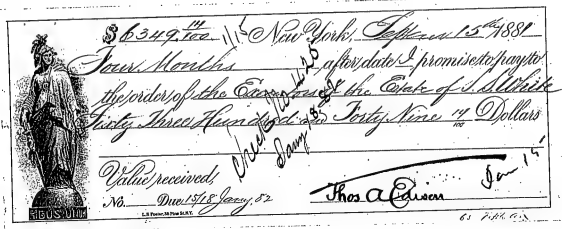 $6349 14/100 New York, Septem 15th 1881
Four Months after date I promise to pay to
the order of the Executors of the Estate of S. S. White
Sixty Three Hundred and Forty Nine 14/100 Dollars
Value received,
No. Due 15/18 Jany. 82
Thos A Edison
Jany 18 82
1/15
Jan 15
L. H. Foster, 38 Pine St. N.Y.
65